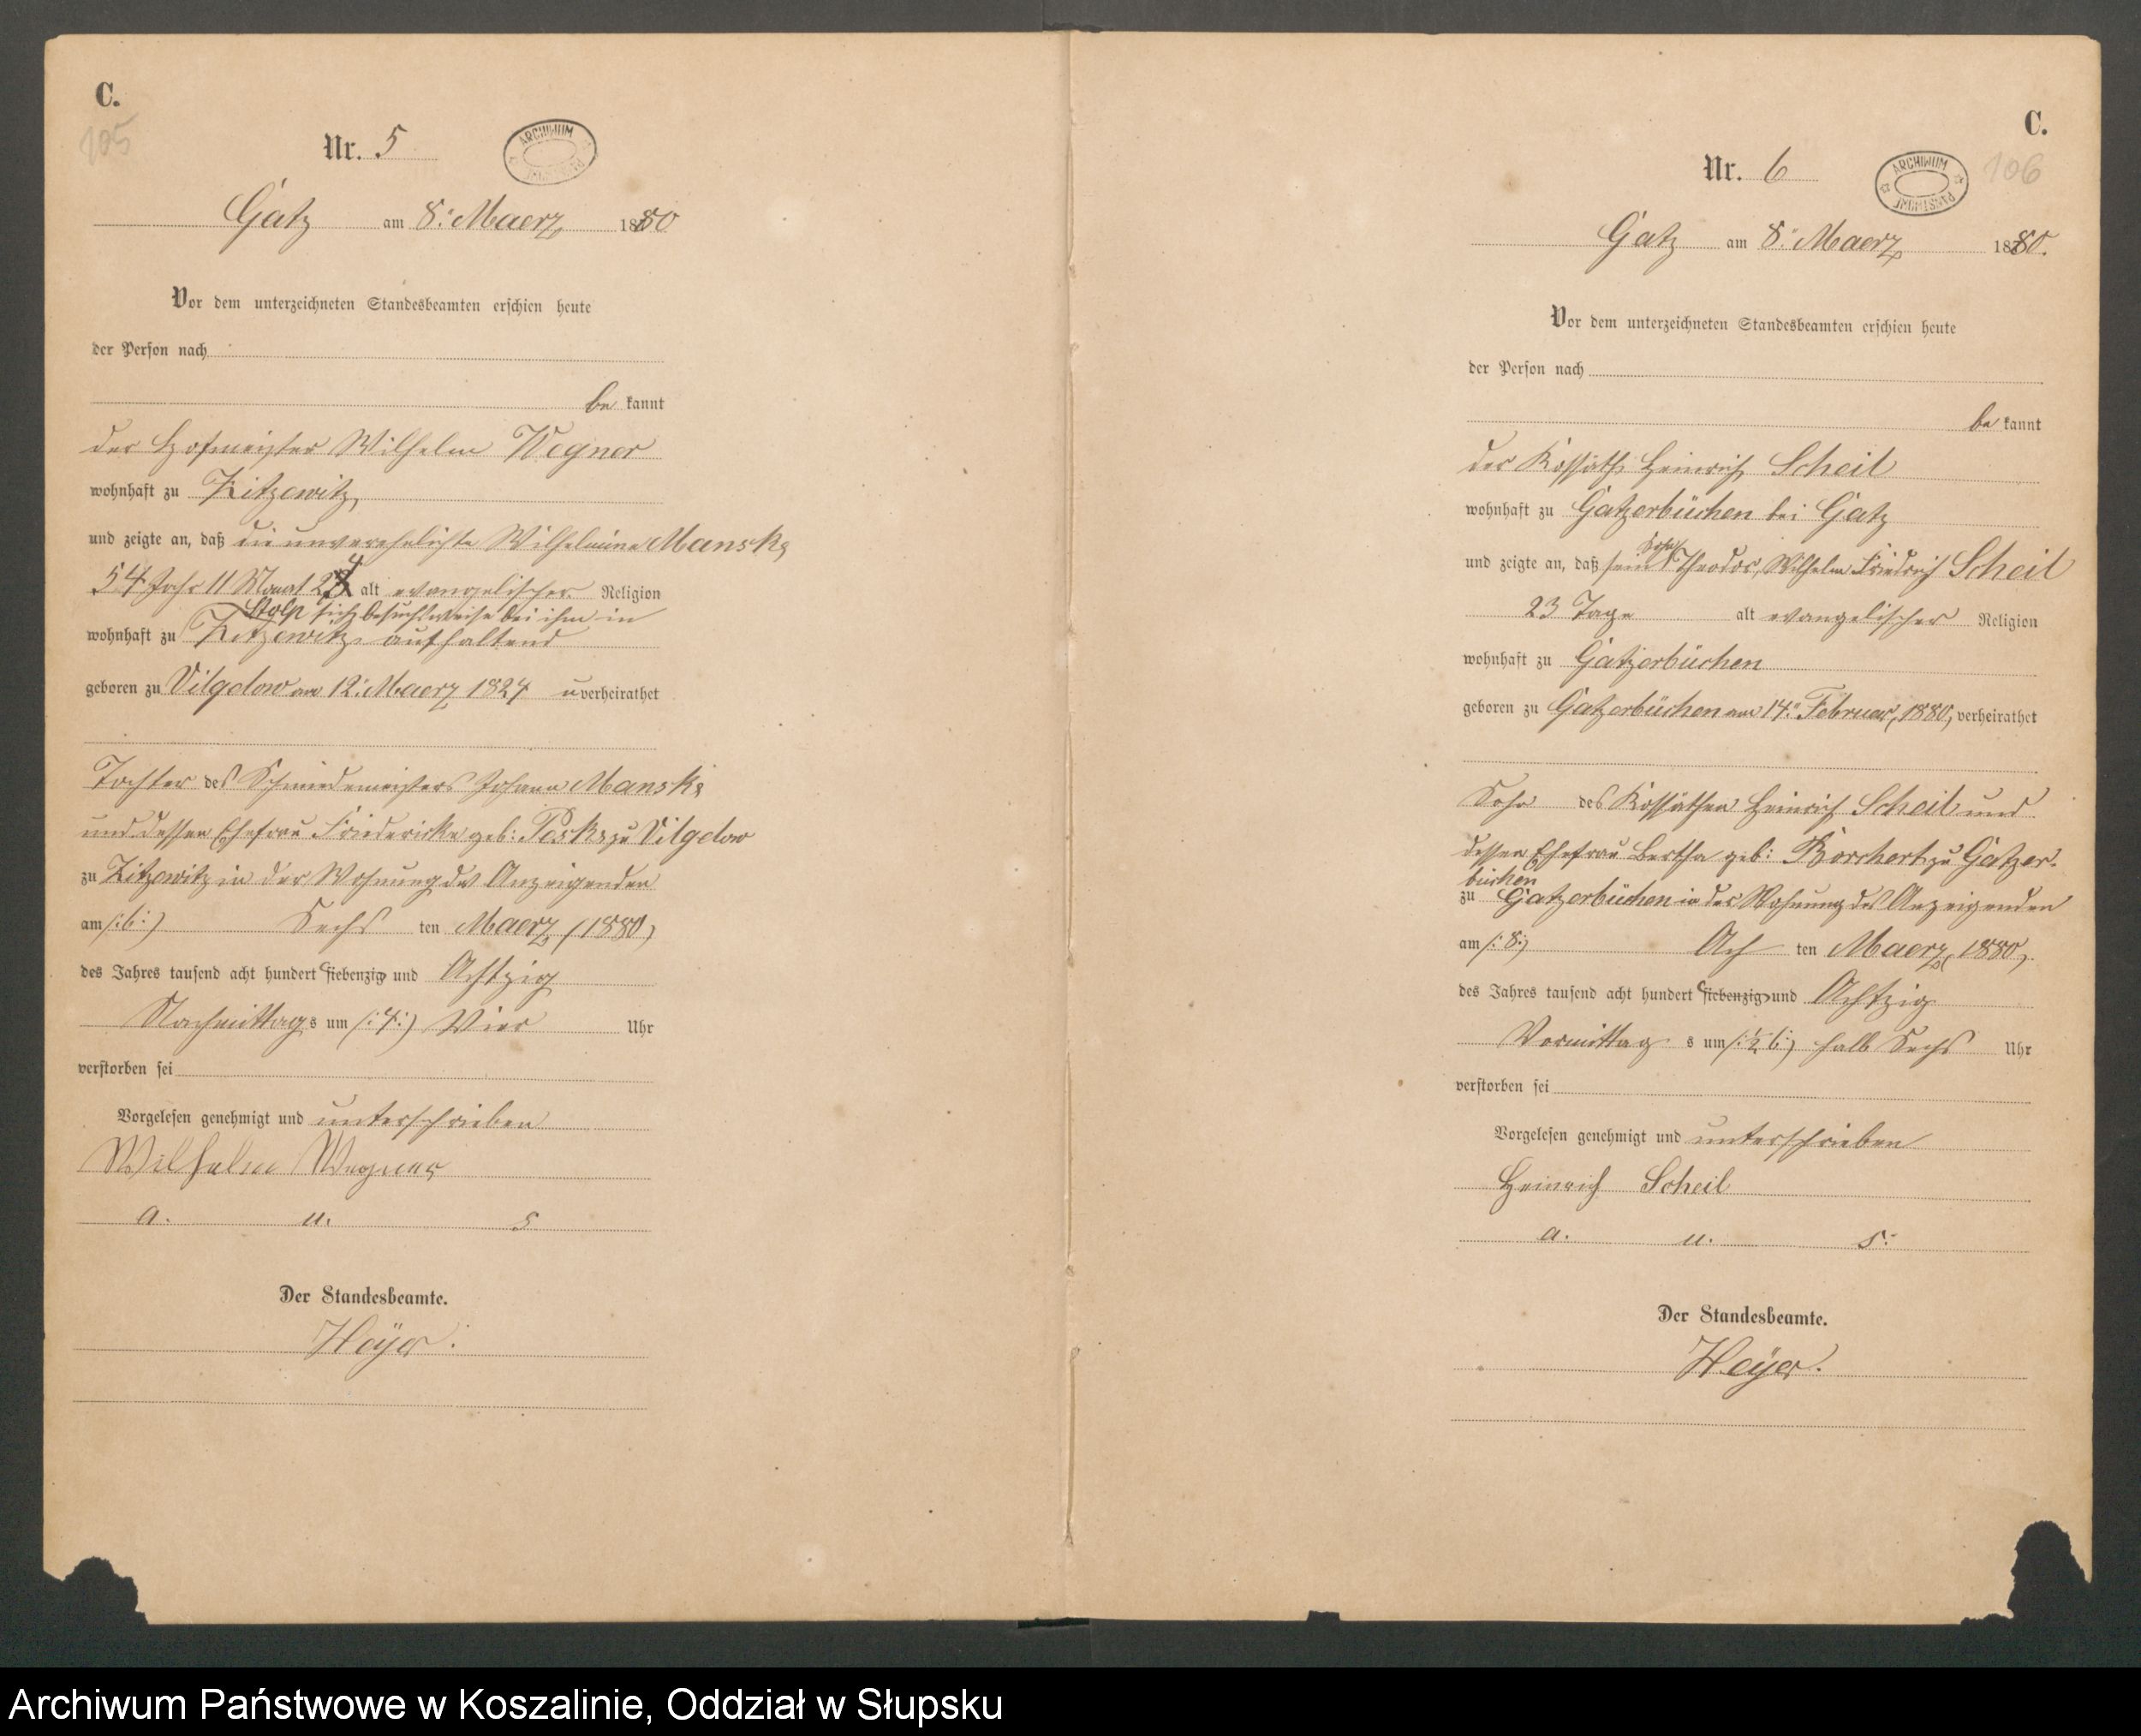 C.
105
Nr. 5
ARCHIWUM
Gatz am 8: Maerz 1880
Vor dem unterzeichneten Standesbeamten erschien heute
der Person nach
be kannt
der Hofmeister Wilhelm Wegner
wohnhaft zu Zitzewitz,
und zeigte an, daß die unverehelichte Wilhelmine Manske
54 Jahr 11 Monat alt evangelischer Religion
Stolp sich besuchsweise bei ihm in
wohnhaft zu Zitzewitz aufhaltend
geboren zu Vilgelow am 12: Maerz 1824 u verheirathet
Tochter des Schmiedemeisters Johann Manske
und dessen Ehefrau Friedericke geb: Peske zu Vilgelow
zu Zitzewitz in der Wohnung des Anzeigenden
am /:6:/ Sechs ten Maerz /1880,
des Jahres tausend acht hundert siebenzig und Achtzig
Nachmittags um /:4:/ Vier Uhr
verstorben sei
Vorgelesen genehmigt und unterschrieben
Wilhelm Wegner
a. u. s
Der Standesbeamte.
Heyer.
C.
106
Nr. 6
ARCHIWUM PAŃSTWOWE
Gatz am 8: Maerz 1880.
Vor dem unterzeichneten Standesbeamten erschien heute
der Person nach
be kannt
der Kossäth Heinrich Scheil
wohnhaft zu Gatzerbüchen bei Gatz
und zeigte an, daß sein Sohn Theodor, Wilhelm Friedrich Scheil
23 Tage alt evangelischer Religion
wohnhaft zu Gatzerbüchen
geboren zu Gatzerbüchen am 14: Februar, 1880, verheirathet
Sohn des Kossäthen Heinrich Scheil und
dessen Ehefrau Bertha geb: Borchert zu Gatzer-
büchen
zu Gatzerbüchen in der Wohnung des Anzeigenden
am /:8:/ Ach ten Maerz, 1880,
des Jahres tausend acht hundert siebenzig und Achtzig
Vormittag s um /:½6:/ halb Sechs Uhr
verstorben sei
Vorgelesen genehmigt und unterschrieben
Heinrich Scheil
a. u. s:
Der Standesbeamte.
Heyer.
Archiwum Państwowe w Koszalinie, Oddział w Słupsku